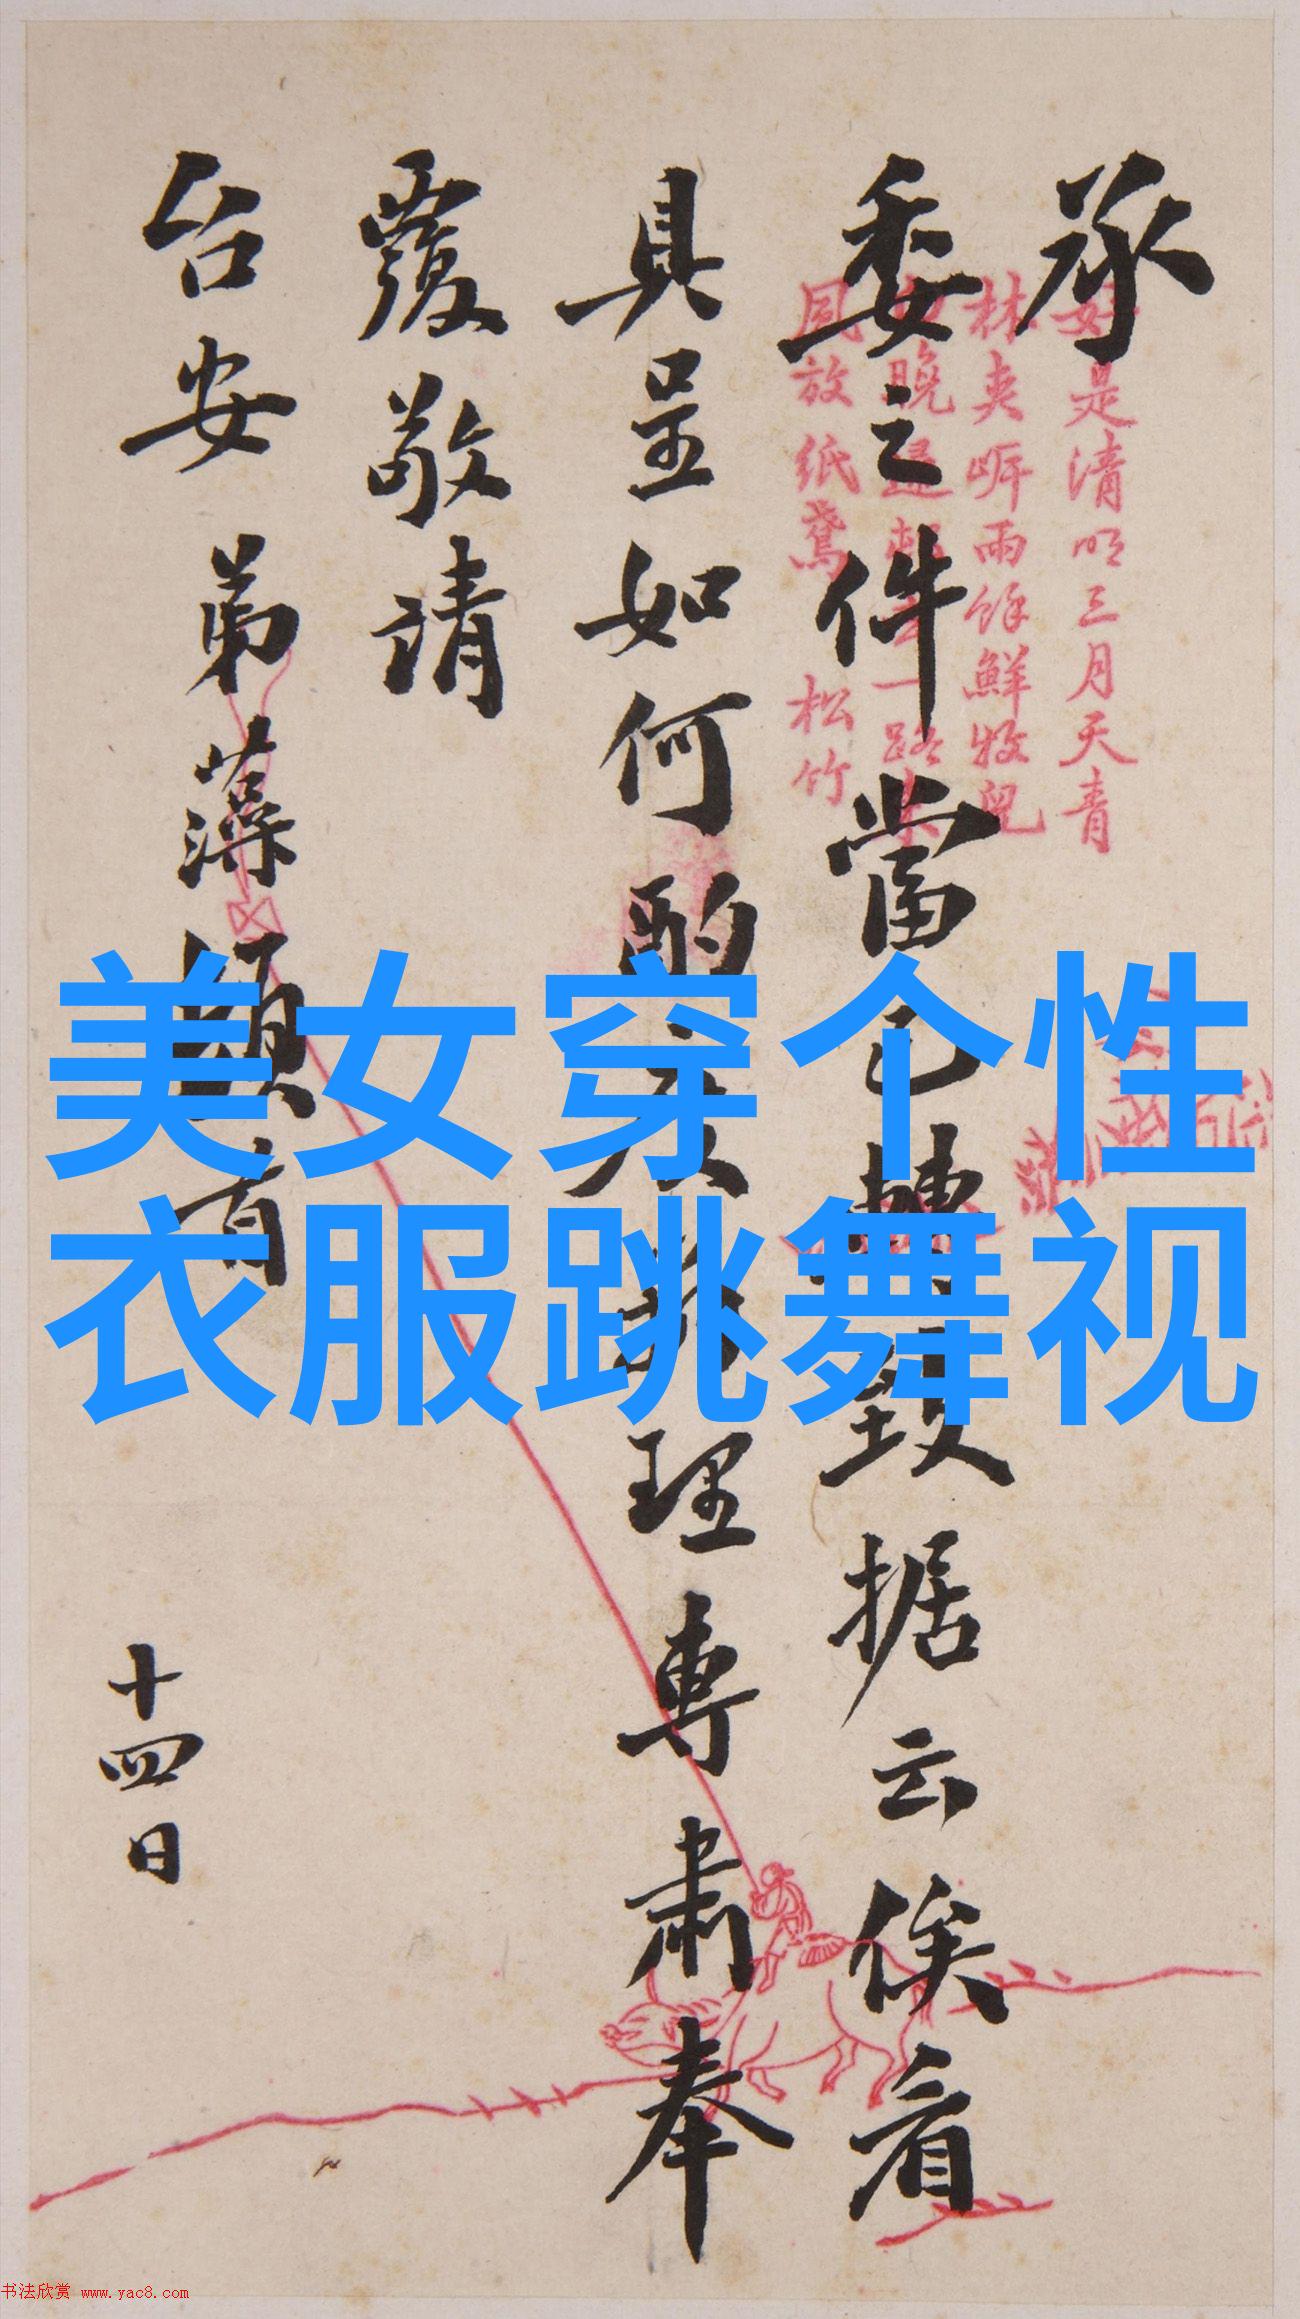 承
委之件當已轉致据云俟看
具呈如何酌理專肅奉
覆敬請
台安 弟藻頓首
十四日
好是清明三月天青
林夾㟁雨餘鮮牧兒
晚歸一路
放紙鳶 松竹
美女穿个性
衣服跳舞视
书法欣赏 www.yac8.com